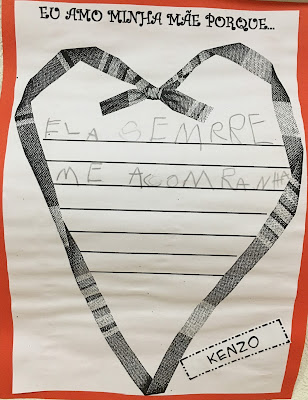 EU AMO MINHA MÃE PORQUE...
ELA SEMRRE
ME ACOMRANHA
KENZO